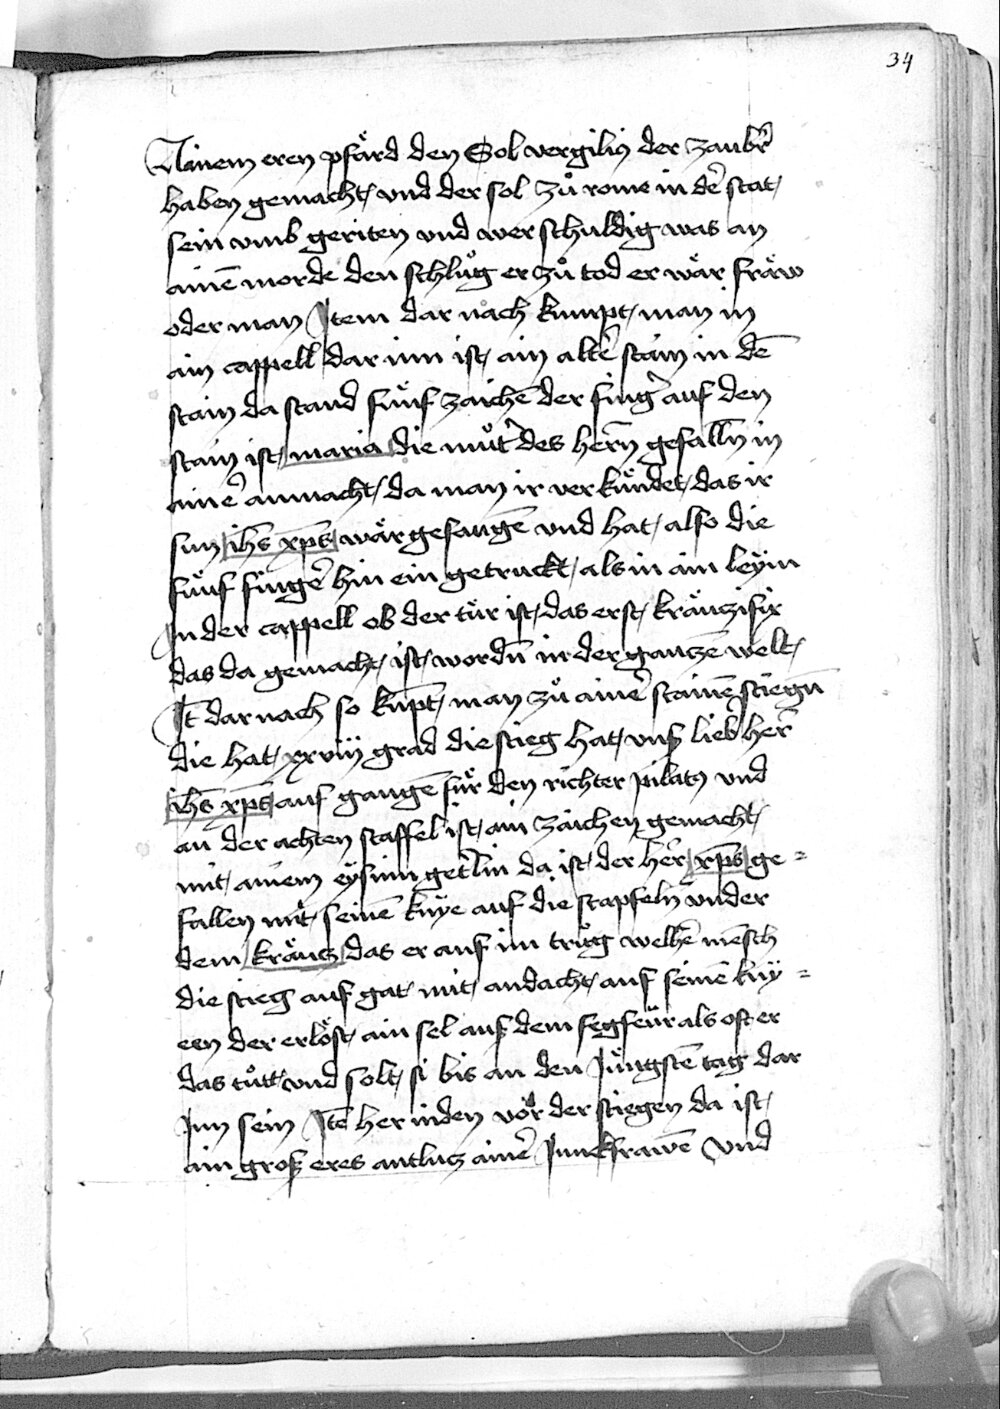 34
Ainem eren pfärd den Sol vergilius der zaubrer
haben gemacht / vnd der sol zů rome in der stat /
sein vmb geriten vnd wer schuldig was an
ainē morde den schlůg er zů tod er wär fräw
oder man Item dar nach kumpt / man in
ain cappell dar inn ist / ain altēr stain in dē
stain da stand fünf zaichē der finger auf den
stain ist / maria die můter des herrn gefalln̄ in
ainer anmacht / da man ir verkündet / das ir
sun ihs xp̄s wär gefangē vnd hat / also die
fünf finger hin ein getruckt / als in ain leym
In der cappell ob der tür ist / das erst / kräuczifix
das da gemacht / ist / wordn̄ in der ganczē welt /
It̄ dar nach so kūpt / man zů ainer stainē stiegn̄
die hat / xxviij grad die stieg hat / vnß lieber herr
ihs xp̄s auf gangē für den richter pilatus vnd
an der achten staffel ist / ain zaichen gemacht /
mit / ainem eysinn getterlin da ist / der herr xp̄s ge=
fallen mit / seinē knye auf die stapfeln vnder
dem kräucz das er auf im trůg welher mēsch
die stieg auf gat / mit / andacht / auf seinē kny=
een der erlöst / ain sel auß dem fegfeür als oft er
das tůtt / vnd solt / si bis an den Jüngstē tag dar
Inn sein Itē her inden vor der stiegen da ist /
ain großeres antlucz ainer Junckfrawē vnd